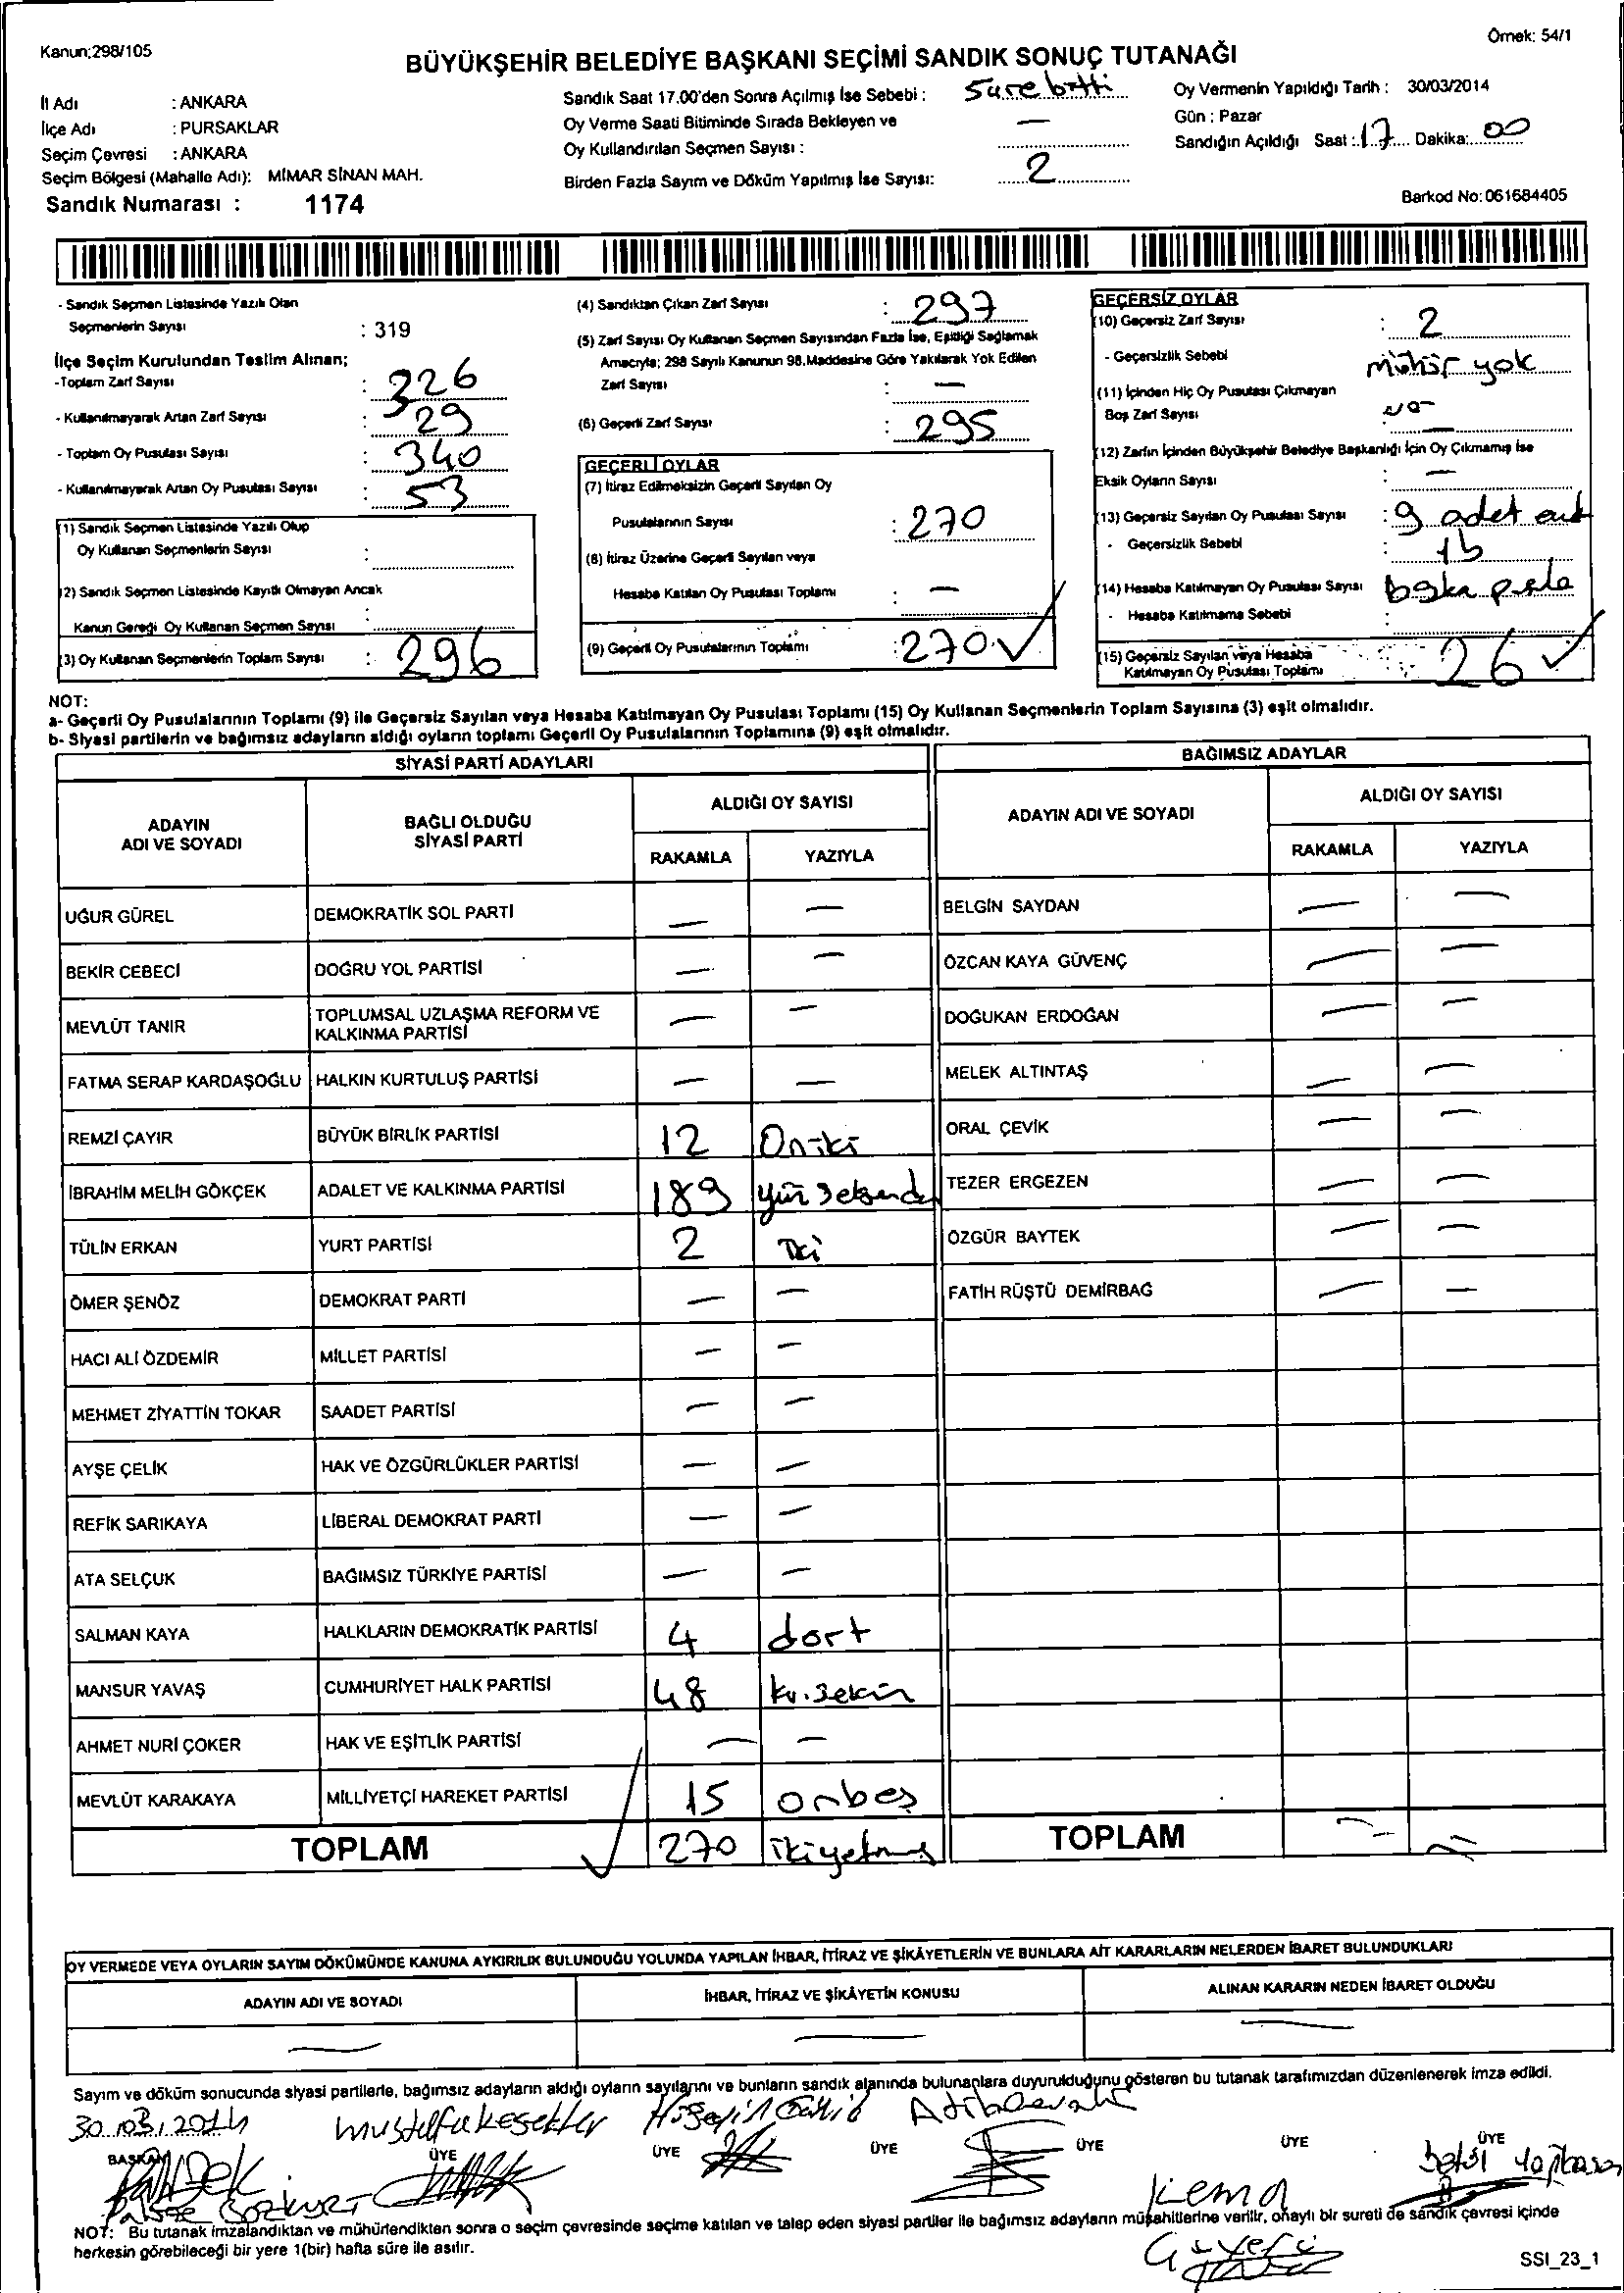 Kanun;298/105
Örnek: 54/1
BÜYÜKŞEHİR BELEDİYE BAŞKANI SEÇİMİ SANDIK SONUÇ TUTANAĞI
İl Adı : ANKARA
İlçe Adı : PURSAKLAR
Seçim Çevresi : ANKARA
Seçim Bölgesi (Mahalle Adı): MİMAR SİNAN MAH.
Sandık Numarası : 1174
Sandık Saat 17.00'den Sonra Açılmış İse Sebebi : Süre bitti
Oy Verme Saati Bitiminde Sırada Bekleyen ve
Oy Kullandırılan Seçmen Sayısı : —
Birden Fazla Sayım ve Döküm Yapılmış İse Sayısı: 2
Oy Vermenin Yapıldığı Tarih : 30/03/2014
Gün : Pazar
Sandığın Açıldığı Saat : 17 Dakika: 00
Barkod No: 061684405
- Sandık Seçmen Listesinde Yazılı Olan
Seçmenlerin Sayısı : 319
İlçe Seçim Kurulundan Teslim Alınan;
-Toplam Zarf Sayısı : 326
- Kullanılmayarak Artan Zarf Sayısı : 29
- Toplam Oy Pusulası Sayısı : 340
- Kullanılmayarak Artan Oy Pusulası Sayısı : 53
(1) Sandık Seçmen Listesinde Yazılı Olup
Oy Kullanan Seçmenlerin Sayısı :
(2) Sandık Seçmen Listesinde Kayıtlı Olmayan Ancak
Kanun Gereği Oy Kullanan Seçmen Sayısı :
(3) Oy Kullanan Seçmenlerin Toplam Sayısı : 296
(4) Sandıktan Çıkan Zarf Sayısı : 297
(5) Zarf Sayısı Oy Kullanan Seçmen Sayısından Fazla İse, Eşitliği Sağlamak
Amacıyla; 298 Sayılı Kanunun 98.Maddesine Göre Yakılarak Yok Edilen
Zarf Sayısı : —
(6) Geçerli Zarf Sayısı : 295
GEÇERLİ OYLAR
(7) İtiraz Edilmeksizin Geçerli Sayılan Oy
Pusulalarının Sayısı : 270
(8) İtiraz Üzerine Geçerli Sayılan veya
Hesaba Katılan Oy Pusulası Toplamı : —
(9) Geçerli Oy Pusulalarının Toplamı : 270 ✓
GEÇERSİZ OYLAR
(10) Geçersiz Zarf Sayısı : 2
- Geçersizlik Sebebi mühür yok
(11) İçinden Hiç Oy Pusulası Çıkmayan
Boş Zarf Sayısı
(12) Zarfın İçinden Büyükşehir Belediye Başkanlığı İçin Oy Çıkmamış İse
Eksik Oyların Sayısı : —
(13) Geçersiz Sayılan Oy Pusulası Sayısı : 9 adet
- Geçersizlik Sebebi :
(14) Hesaba Katılmayan Oy Pusulası Sayısı
- Hesaba Katılmama Sebebi :
(15) Geçersiz Sayılan veya Hesaba
Katılmayan Oy Pusulası Toplamı : 26 ✓
NOT:
a- Geçerli Oy Pusulalarının Toplamı (9) ile Geçersiz Sayılan veya Hesaba Katılmayan Oy Pusulası Toplamı (15) Oy Kullanan Seçmenlerin Toplam Sayısına (3) eşit olmalıdır.
b- Siyasi partilerin ve bağımsız adayların aldığı oyların toplamı Geçerli Oy Pusulalarının Toplamına (9) eşit olmalıdır.
SİYASİ PARTİ ADAYLARI
BAĞIMSIZ ADAYLAR
ADAYIN ADI VE SOYADI
BAĞLI OLDUĞU SİYASİ PARTİ
ALDIĞI OY SAYISI
RAKAMLA YAZIYLA
ADAYIN ADI VE SOYADI
ALDIĞI OY SAYISI
RAKAMLA YAZIYLA
UĞUR GÜREL DEMOKRATİK SOL PARTİ — — BELGİN SAYDAN — —
BEKİR CEBECİ DOĞRU YOL PARTİSİ — — ÖZCAN KAYA GÜVENÇ — —
MEVLÜT TANIR TOPLUMSAL UZLAŞMA REFORM VE KALKINMA PARTİSİ — — DOĞUKAN ERDOĞAN — —
FATMA SERAP KARDAŞOĞLU HALKIN KURTULUŞ PARTİSİ — — MELEK ALTINTAŞ — —
REMZİ ÇAYIR BÜYÜK BİRLİK PARTİSİ 12 Oniki ORAL ÇEVİK — —
İBRAHİM MELİH GÖKÇEK ADALET VE KALKINMA PARTİSİ 189 TEZER ERGEZEN — —
TÜLİN ERKAN YURT PARTİSİ 2 iki ÖZGÜR BAYTEK — —
ÖMER ŞENÖZ DEMOKRAT PARTİ — — FATİH RÜŞTÜ DEMİRBAĞ — —
HACI ALİ ÖZDEMİR MİLLET PARTİSİ — —
MEHMET ZİYATTİN TOKAR SAADET PARTİSİ — —
AYŞE ÇELİK HAK VE ÖZGÜRLÜKLER PARTİSİ — —
REFİK SARIKAYA LİBERAL DEMOKRAT PARTİ — —
ATA SELÇUK BAĞIMSIZ TÜRKİYE PARTİSİ — —
SALMAN KAYA HALKLARIN DEMOKRATİK PARTİSİ 4 dört
MANSUR YAVAŞ CUMHURİYET HALK PARTİSİ 48
AHMET NURİ ÇOKER HAK VE EŞİTLİK PARTİSİ — —
MEVLÜT KARAKAYA MİLLİYETÇİ HAREKET PARTİSİ 15 onbeş
TOPLAM ✓ 270 ikiyetmiş TOPLAM — —
OY VERMEDE VEYA OYLARIN SAYIM DÖKÜMÜNDE KANUNA AYKIRILIK BULUNDUĞU YOLUNDA YAPILAN İHBAR, İTİRAZ VE ŞİKÂYETLERİN VE BUNLARA AİT KARARLARIN NELERDEN İBARET BULUNDUKLARI
ADAYIN ADI VE SOYADI İHBAR, İTİRAZ VE ŞİKÂYETİN KONUSU ALINAN KARARIN NEDEN İBARET OLDUĞU
— — —
Sayım ve döküm sonucunda siyasi partilerle, bağımsız adayların aldığı oyların sayılarını ve bunların sandık alanında bulunanlara duyurulduğunu gösteren bu tutanak tarafımızdan düzenlenerek imza edildi.
30.03.2014
BAŞKAN ÜYE ÜYE ÜYE ÜYE ÜYE ÜYE
Kemal
NOT: Bu tutanak imzalandıktan ve mühürlendikten sonra o seçim çevresinde seçime katılan ve talep eden siyasi partiler ile bağımsız adayların müşahitlerine verilir, onaylı bir sureti de sandık çevresi içinde
herkesin görebileceği bir yere 1(bir) hafta süre ile asılır.
SSI_23_1